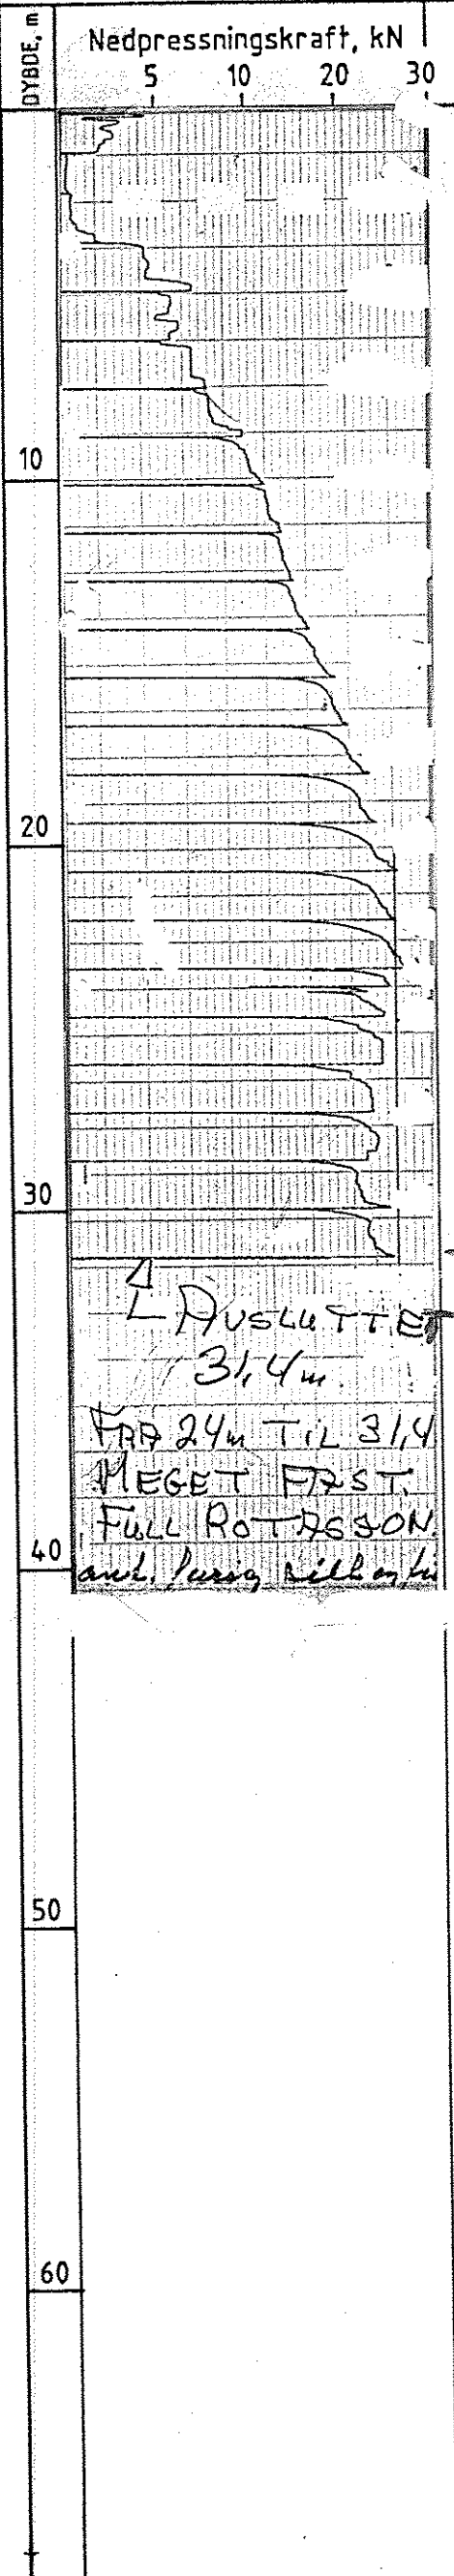 DYBDE, m
Nedpressningskraft, kN
5 10 20 30
10
20
30
AVSLUTTET
31,4 m.
FRA 24m TIL 31,4
MEGET FAST.
FULL ROTASJON.
40
50
60